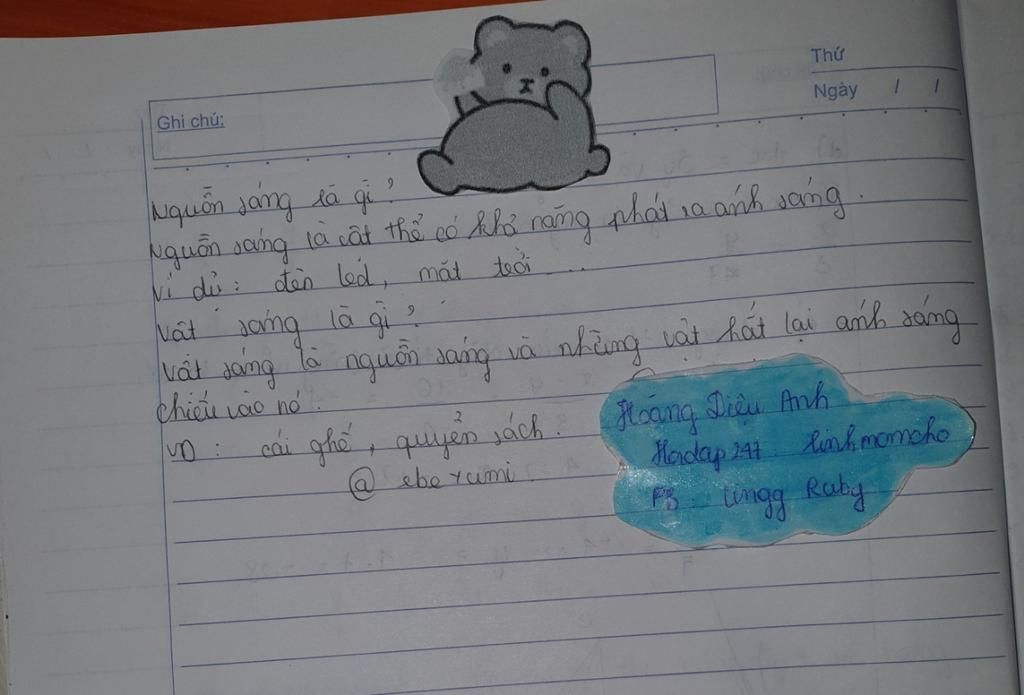 Thứ
Ngày / /
Ghi chú:
Nguồn sáng là gì?
Nguồn sáng là vật thể có khả năng phát ra ánh sáng.
Ví dụ: đèn led, mặt trời...
Vật sáng là gì?
Vật sáng là nguồn sáng và những vật hắt lại ánh sáng
chiếu vào nó.
VD: cái ghế, quyển sách.
@ ebe rumi.
Hoàng Diệu Anh
Hoidap247: linhmomcho
FB: Lingg Ruby